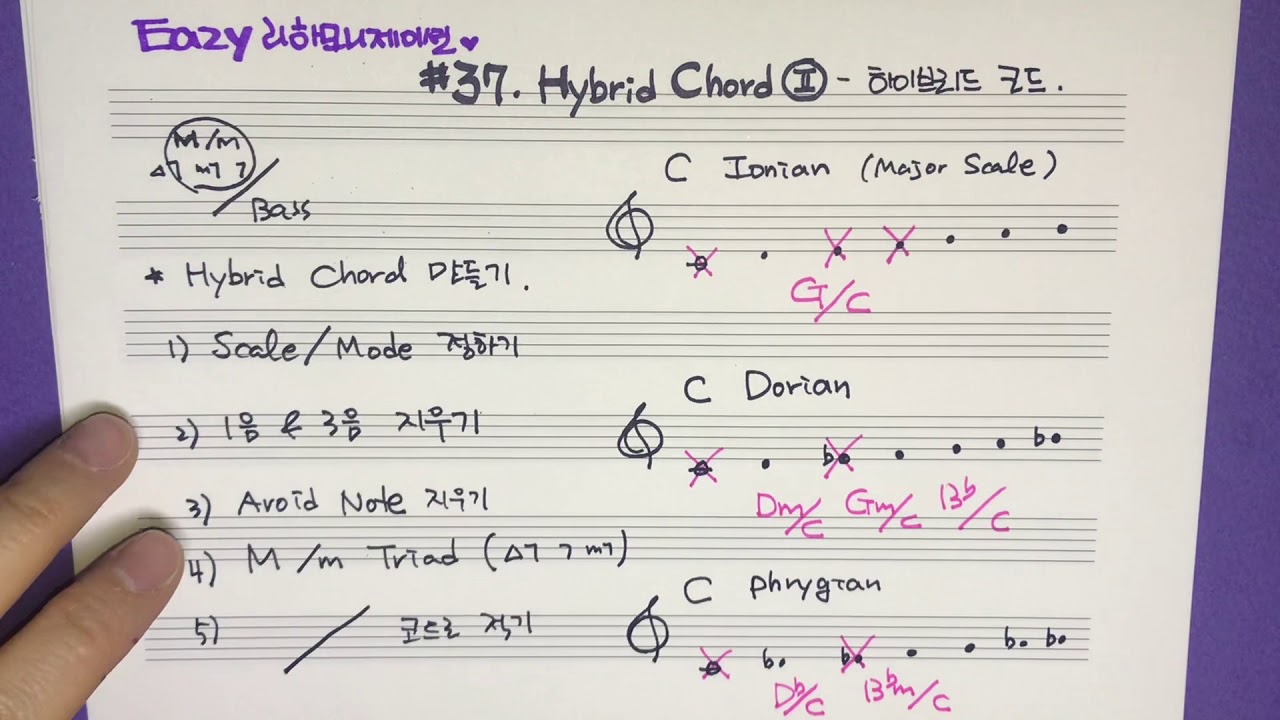 Eazy 리하모니제이션 ♥
#37. Hybrid Chord Ⅱ - 하이브리드 코드.
M/m
△7 m7 7
Bass
C Ionian (Major Scale)
G/C
* Hybrid Chord 만들기.
1) Scale/Mode 정하기
C Dorian
2) 1음 & 3음 지우기
Dm/C Gm/C B♭/C
3) Avoid Note 지우기
4) M/m Triad (△7 7 m7)
C phrygian
5) / 코드로 적기
D♭/C B♭m/C